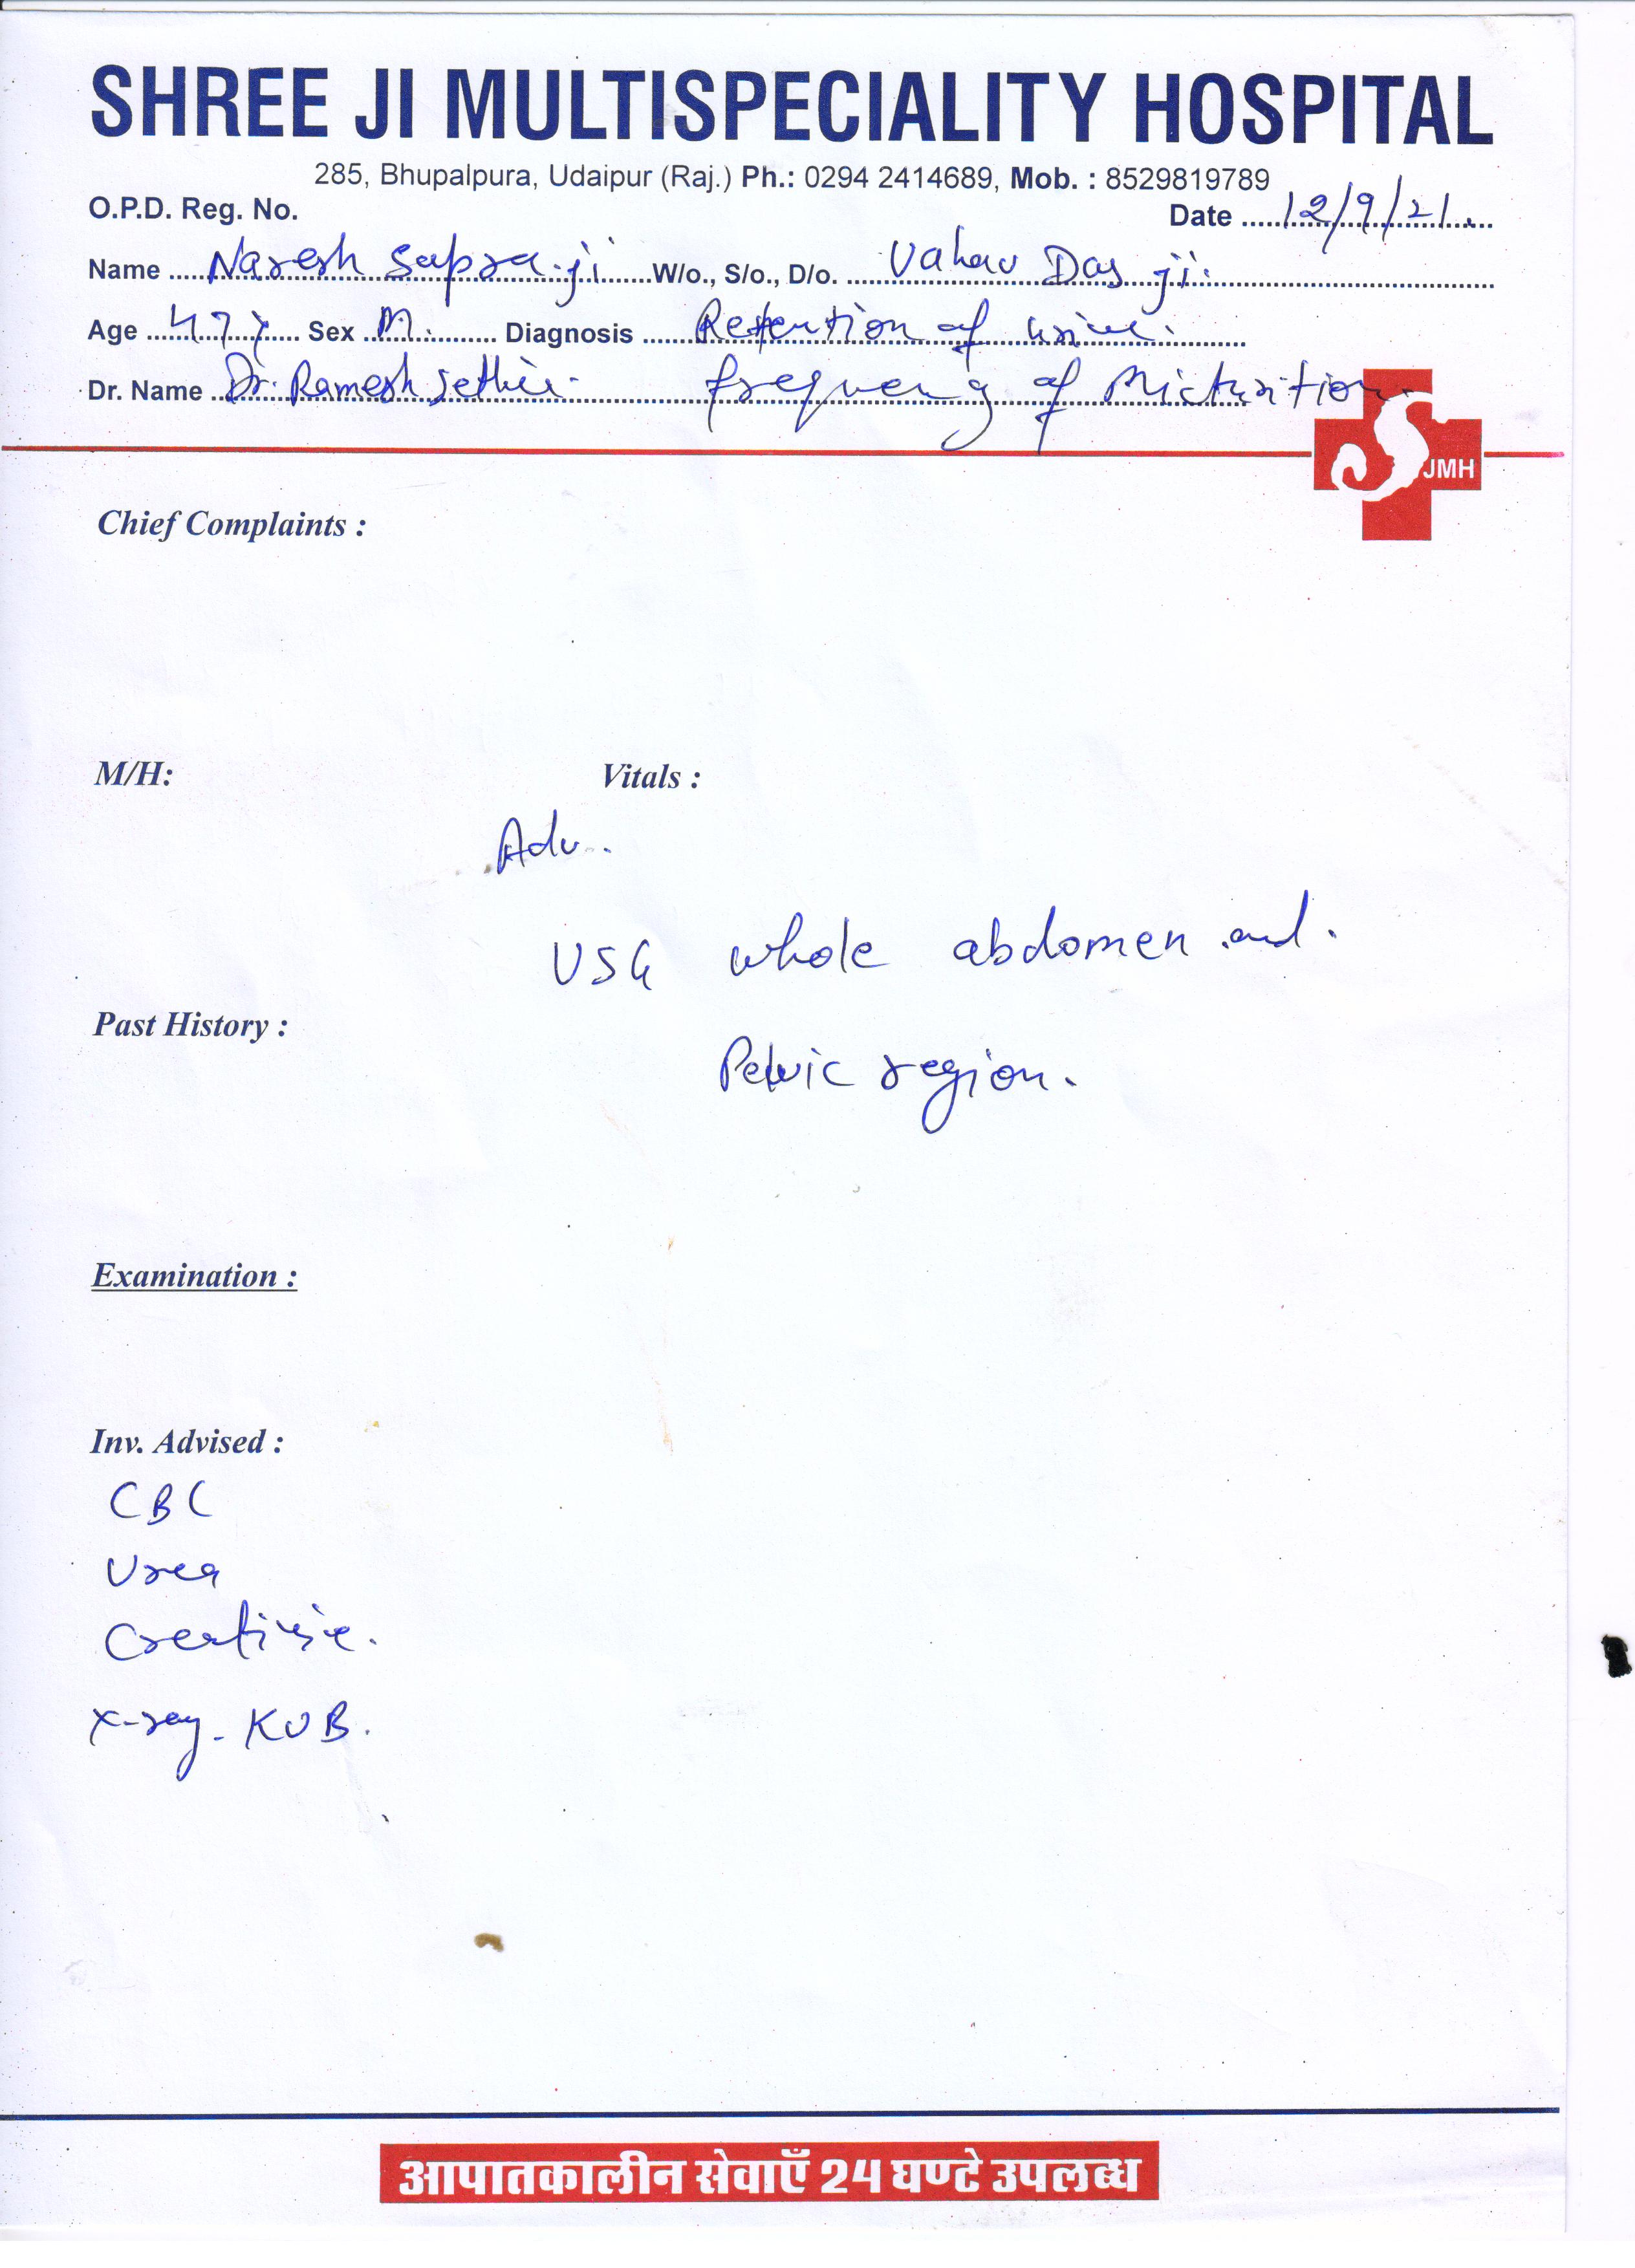 SHREE JI MULTISPECIALITY HOSPITAL
285, Bhupalpura, Udaipur (Raj.) Ph.: 0294 2414689, Mob. : 8529819789
O.P.D. Reg. No.
Date 12/9/21.
Name Naresh Sapra ji W/o., S/o., D/o. Das ji.
Age 47 y Sex M. Diagnosis Retention of urine.
Dr. Name Dr. Ramesh frequency of Micturition.
JMH
Chief Complaints :
M/H: Vitals :
Adv.
USG whole abdomen and.
Past History :
Pelvic region.
Examination :
Inv. Advised :
CBC
Urea
Creatinine.
X-ray - KUB.
आपातकालीन सेवाएँ 24 घण्टे उपलब्ध